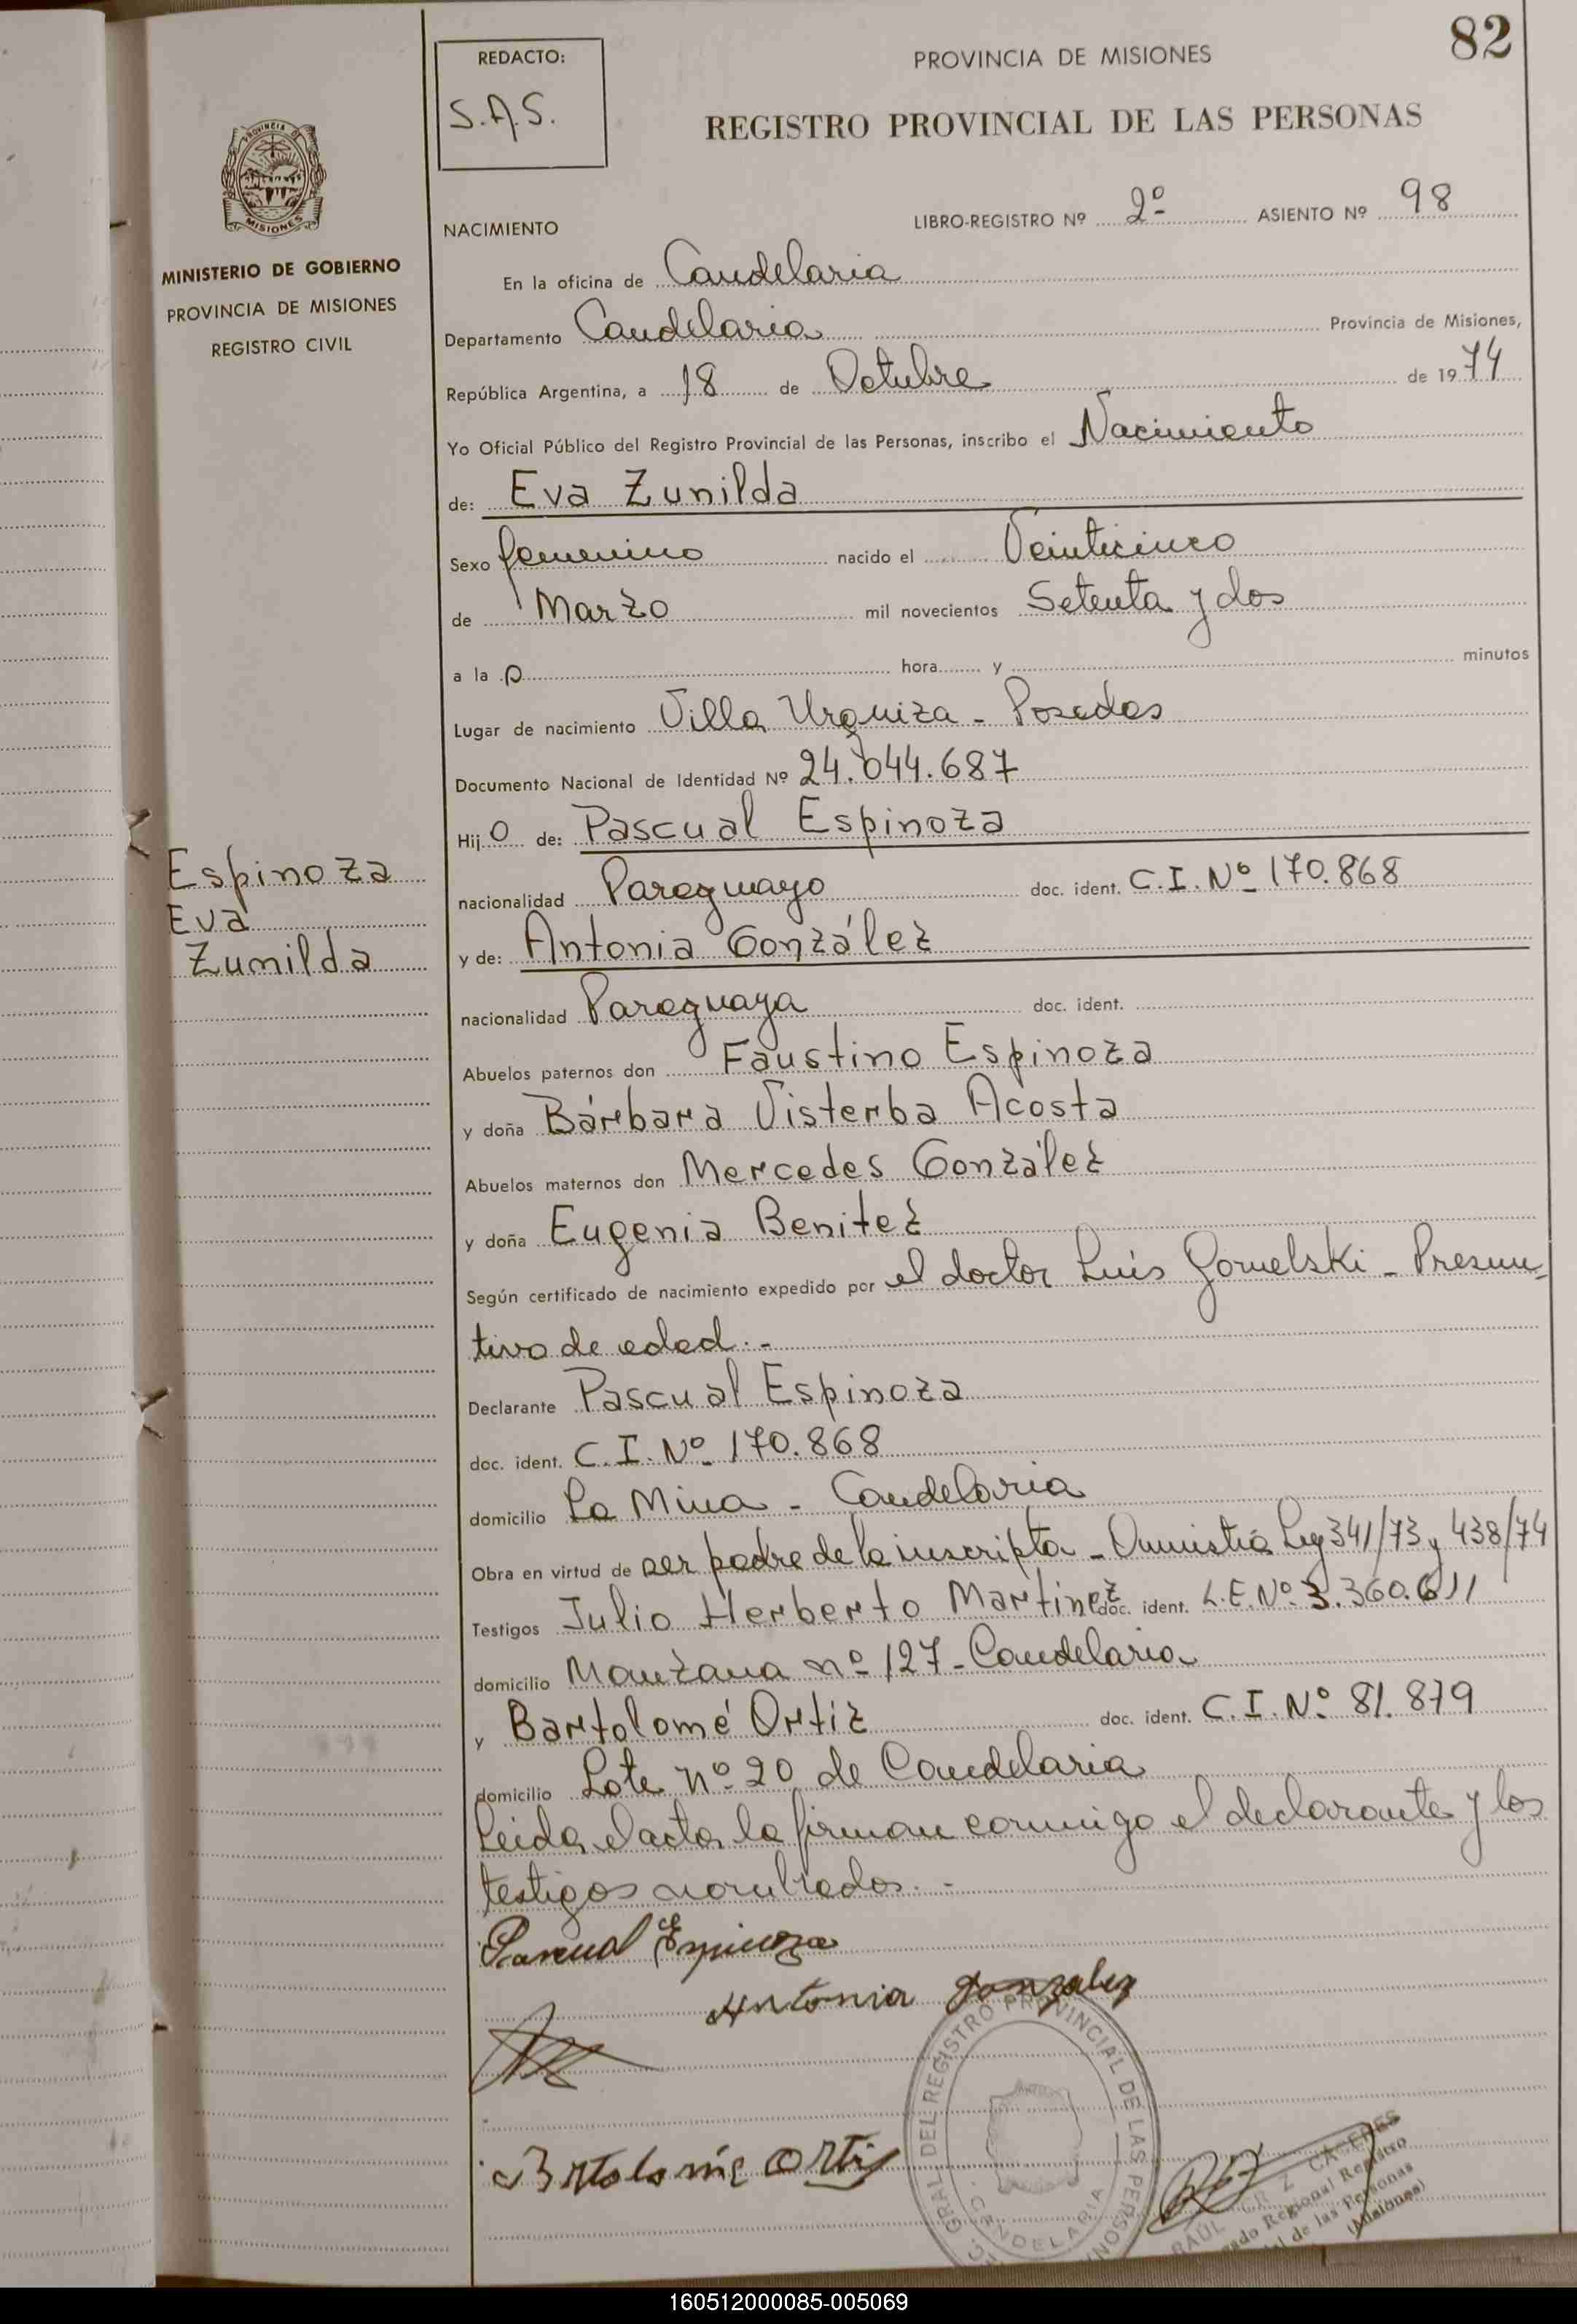 82
REDACTO:
S.A.S.
PROVINCIA DE MISIONES
REGISTRO PROVINCIAL DE LAS PERSONAS
PROVINCIA DE
MISIONES
MINISTERIO DE GOBIERNO
PROVINCIA DE MISIONES
REGISTRO CIVIL
NACIMIENTO
LIBRO-REGISTRO Nº 2º ASIENTO Nº 98
En la oficina de Candelaria
Departamento Candelaria Provincia de Misiones,
República Argentina, a 18 de Octubre de 1974
Yo Oficial Público del Registro Provincial de las Personas, inscribo el Nacimiento
de: Eva Zunilda
Sexo femenino nacido el Veinticinco
de Marzo mil novecientos Setenta y dos
a la hora y minutos
Lugar de nacimiento Villa Urquiza - Posadas
Documento Nacional de Identidad Nº 24.044.687
Hijo de: Pascual Espinoza
Espinoza
Eva
Zunilda
nacionalidad Paraguayo doc. ident. C.I. Nº 170.868
y de: Antonia González
nacionalidad Paraguaya doc. ident.
Abuelos paternos don Faustino Espinoza
y doña Bárbara Visterba Acosta
Abuelos maternos don Mercedes González
y doña Eugenia Benitez
Según certificado de nacimiento expedido por el doctor Luis Gomelski - Presun-
tivo de edad.-
Declarante Pascual Espinoza
doc. ident. C.I. Nº 170.868
domicilio La Mina - Candelaria
Obra en virtud de ser padre de la inscripta - Amnistía Ley 341/73 y 438/74
Testigos Julio Herberto Martinez doc. ident. L.E. Nº 3.360.611
domicilio Manzana nº 127 - Candelaria
y Bartolomé Ortiz doc. ident. C.I. Nº 81.879
domicilio Lote nº 20 de Candelaria
Leida el acta la firman conmigo el declarante y los
testigos nombrados.-
Pascual Espinoza
Antonia Gonzalez
Brtolome Ortiz
GRAL DEL REGISTRO PROVINCIAL DE LAS PERSONAS
CANDELARIA
RAÚL CACERES
Regional Registro
de las Personas
(Misiones)
160512000085-005069